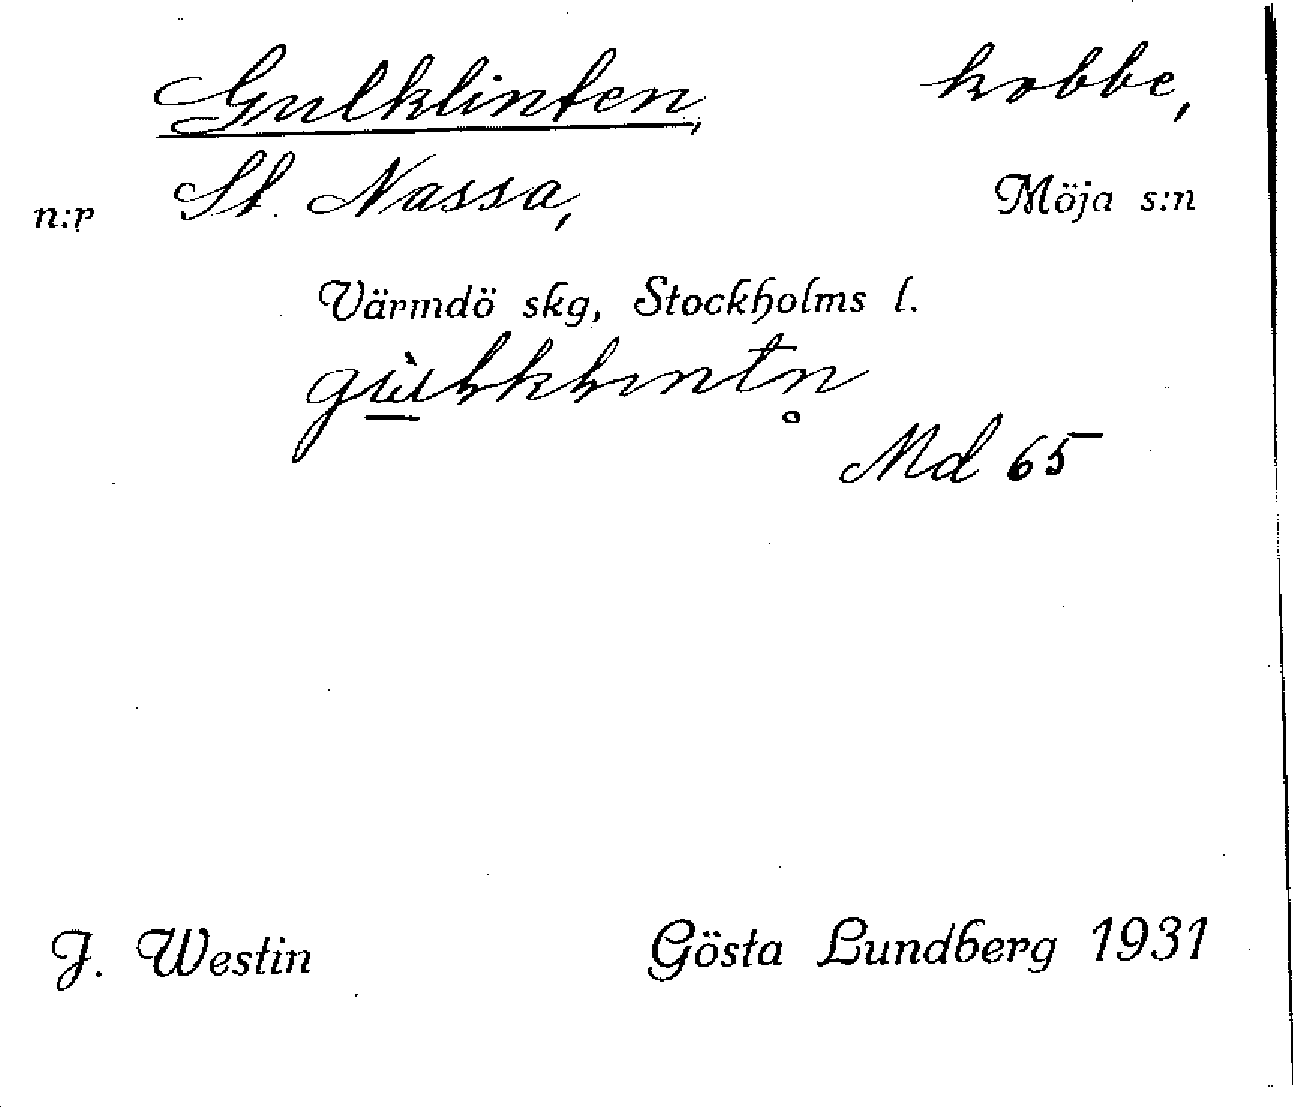 Gulklinten, kobbe,
n:r St. Nassa, Möja s:n
Värmdö skg, Stockholms l.
Md 65
J. Westin Gösta Lundberg 1931